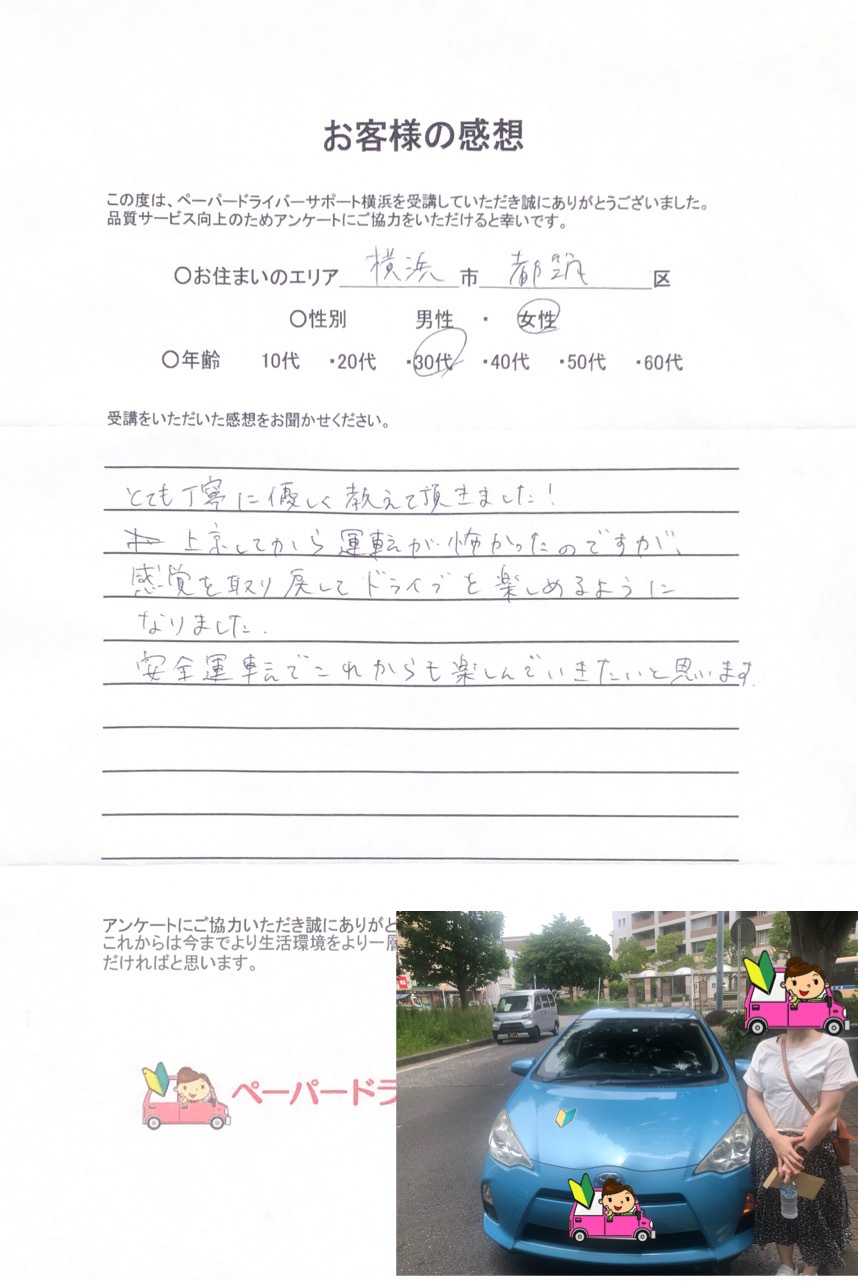 お客様の感想
この度は、ペーパードライバーサポート横浜を受講していただき誠にありがとうございました。
品質サービス向上のためアンケートにご協力をいただけると幸いです。
〇お住まいのエリア 横浜 市 都筑 区
〇性別 男性 ・ 女性
〇年齢 10代 ・20代 ・30代 ・40代 ・50代 ・60代
受講をいただいた感想をお聞かせください。
とても丁寧に優しく教えて頂きました！
上京してから運転が怖かったのですが、
感覚を取り戻してドライブを楽しめるように
なりました.
安全運転でこれからも楽しんでいきたいと思います.
アンケートにご協力いただき誠にありがと
これからは今までより生活環境をより一層
だければと思います。
ペーパードラ